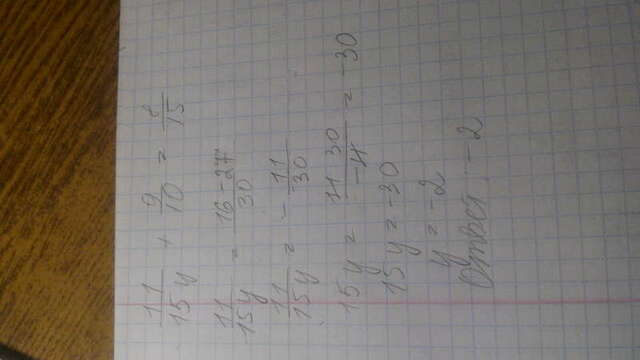 11/15y + 9/10 = 8/15
11/15y = 16-27/30
11/15y = - 11/30
15y = 11 30/-11 = -30
15y = -30
y = -2
Ответ -2